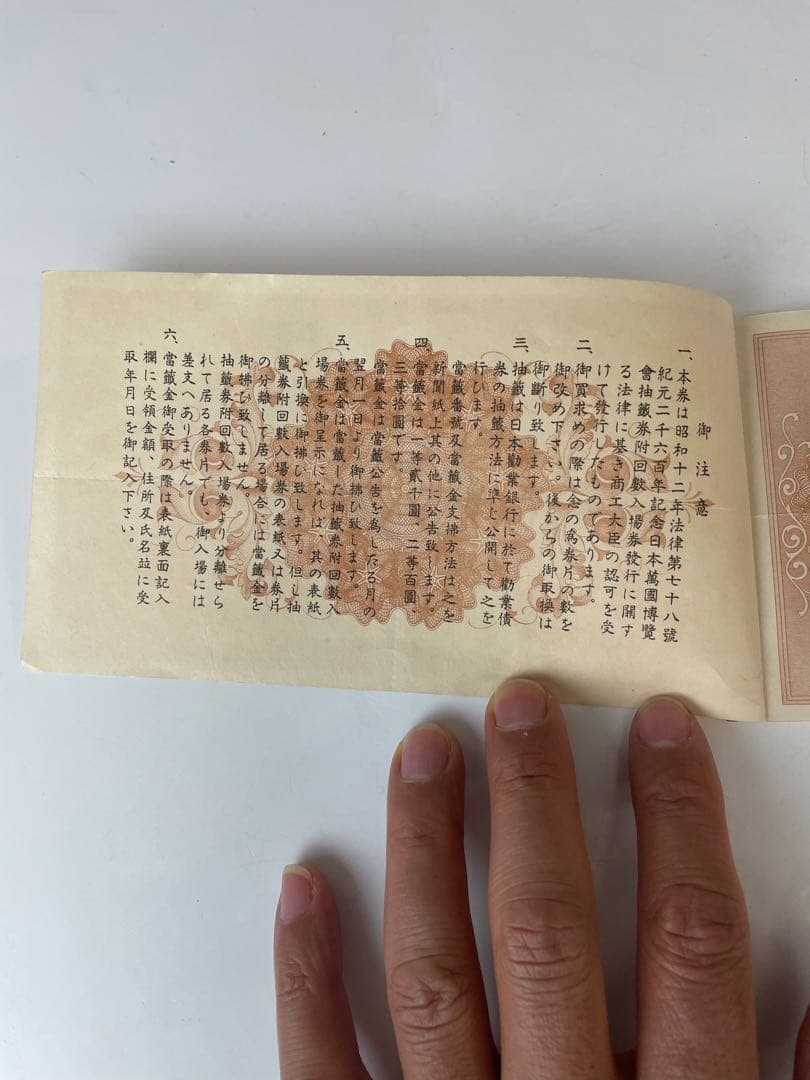 御注意
一、本券は昭和十二年法律第七十八號
紀元二千六百年記念日本萬國博覽
會抽籤券附回數入場券發行に關す
る法律に基き商工大臣の認可を受
けて發行したものであります。
二、御買求めの際は念の為券片の數を
御改め下さい。後からの御取換は
御斷り致します。
三、抽籤は日本勸業銀行に於て勸業債
券の抽籤方法に準じ公開して之を
行ひます。
當籤番號及當籤金支拂方法は之を
新聞紙上其の他に公告致します。
四、當籤金は一等貳千圓、二等百圓、
三等拾圓です。
當籤金は當籤公告を為したる月の
翌月一日より御拂ひ致します
五、當籤金は當籤した抽籤券附回數入
場券を御呈示になれば、其の表紙
と引換に御拂ひ致します。但し抽
籤券附回數入場券の表紙又は券片
の分離して居る場合には當籤金を
御拂ひ致しません。
抽籤券附回數入場券より分離せら
れて居る各券片でも、御入場には
差支へありません。
六、當籤金御受取の際は表紙裏面記入
欄に受領金額、住所及氏名竝に受
取年月日を御記入下さい。